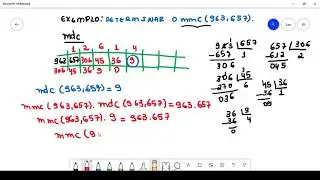 EXEMPLO: DETERMINAR O mmc (963,657).
mdc
1 2 6 1 4
963 657 306 45 36 9
306 45 36 9 0
mdc (963,657) = 9
mmc (963,657). mdc (963,657) = 963.657
mmc (963,657). 9 = 963.657
mmc (9
963 657
-657 1
306
657 306
-612 2
045
306 45
-270 6
036
45 36
-36 1
09
36 9
-36 4
0